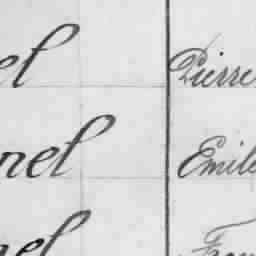 el Pierre
nel Emile
nel Fran